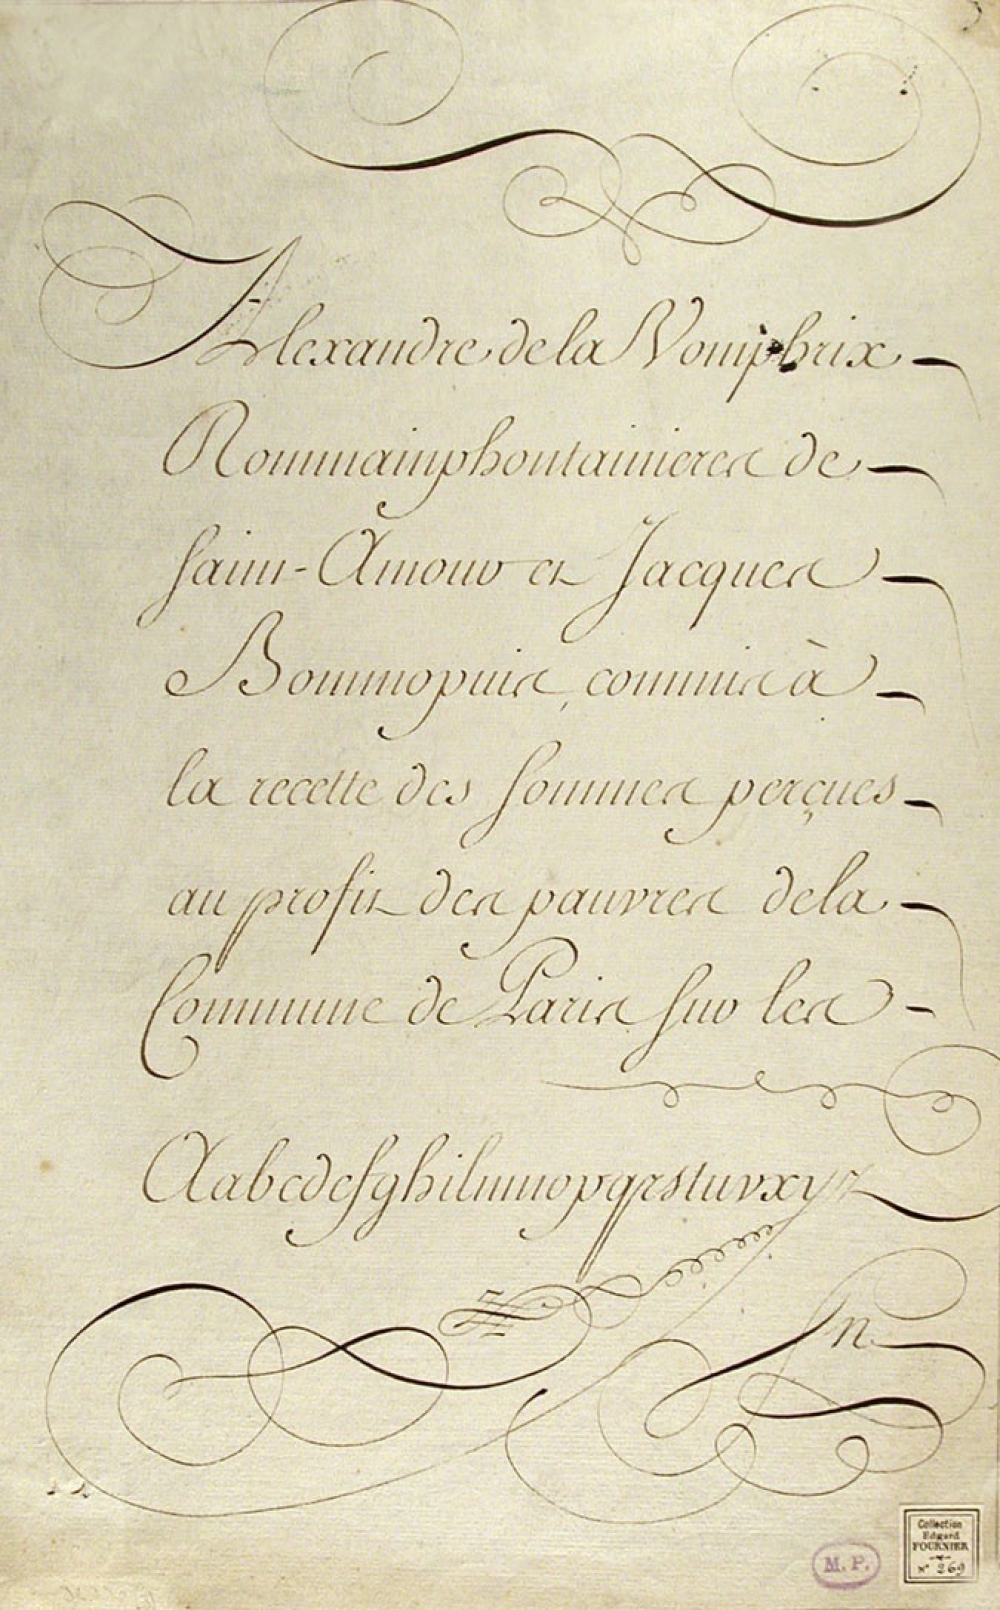 Alexandre de la Vomphrix
Rommainphontainieres de
saint-Amour et Jacques
Bommopuis, commis à
la recette des sommes perçues
au profit des pauvres dela
Commune de Paris sur les
Aabcdefghilmnopqrstuvxyz
n
Collection
Edgard
FOURNIER
N° 269
M. P.